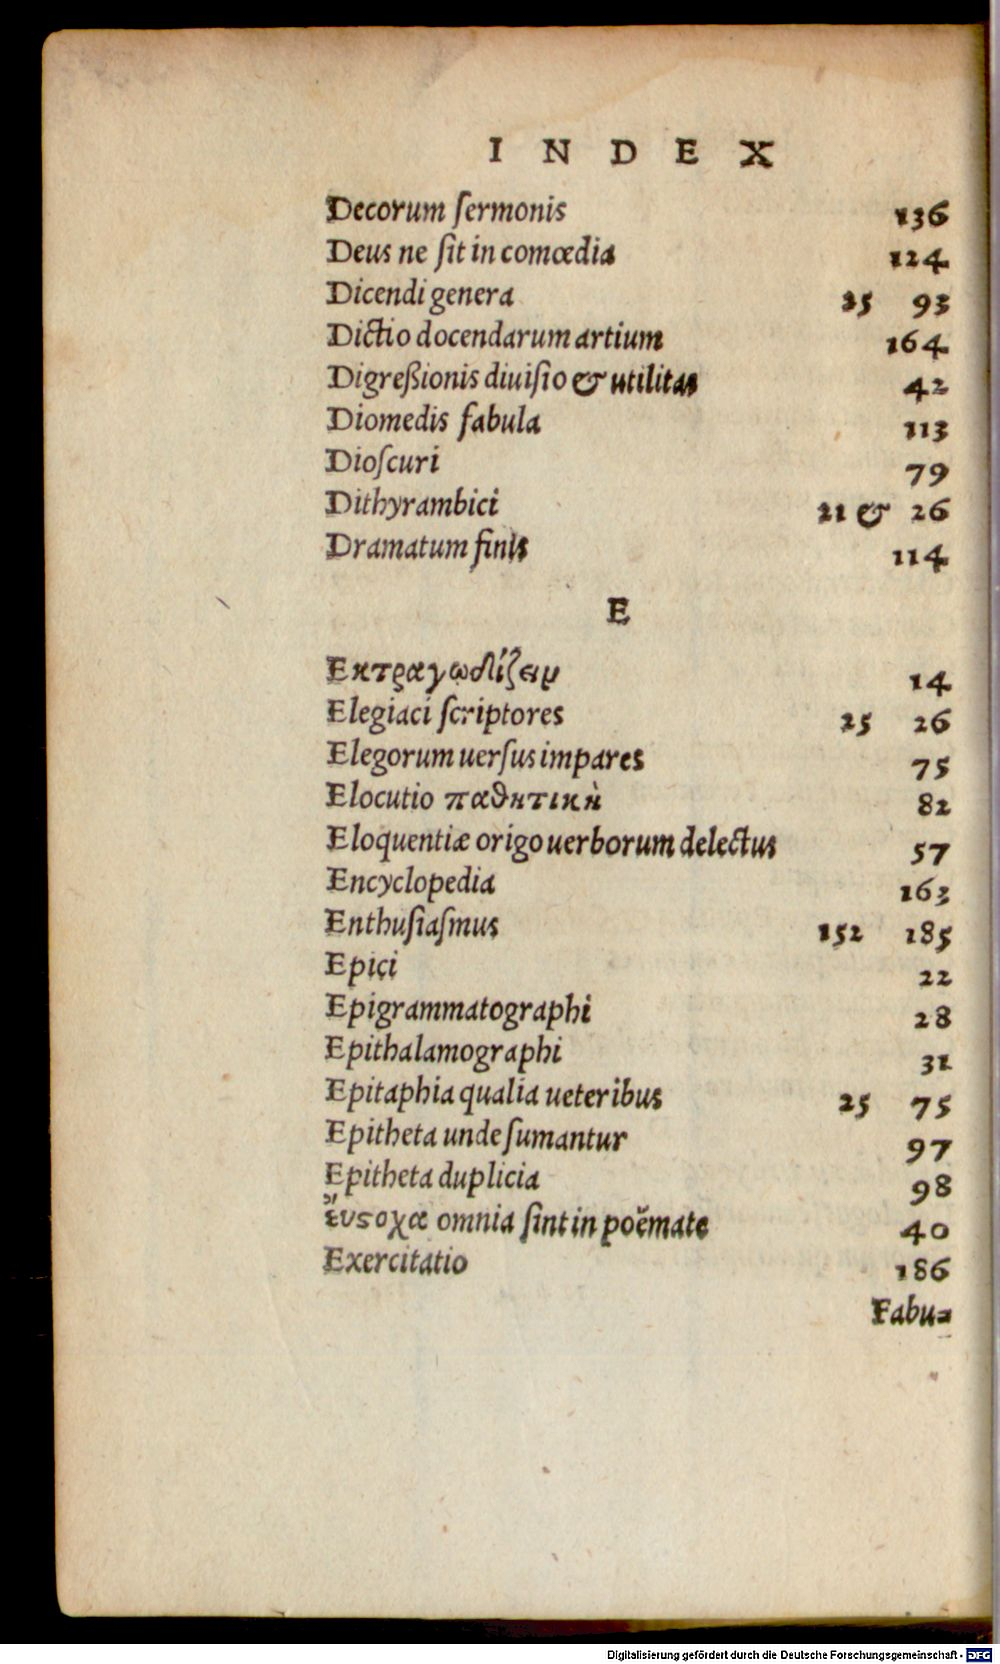 INDEX
Decorum ſermonis 136
Deus ne ſit in comœdia 124
Dicendi genera 25 93
Dictio docendarum artium 164
Digreßionis diuiſio & utilitas 42
Diomedis fabula 113
Dioſcuri 79
Dithyrambici 21 & 26
Dramatum finis 114
E
Εκτραγωδίζειν 14
Elegiaci ſcriptores 25 26
Elegorum uerſus impares 75
Elocutio παθητικὴ 82
Eloquentiæ origo uerborum delectus 57
Encyclopedia 163
Enthuſiaſmus 152 185
Epici 22
Epigrammatographi 28
Epithalamographi 31
Epitaphia qualia ueteribus 25 75
Epitheta unde ſumantur 97
Epitheta duplicia 98
ἔυϛοχα omnia ſint in poëmate 40
Exercitatio 186
Fabu=
Digitalisierung gefördert durch die Deutsche Forschungsgemeinschaft - DFG